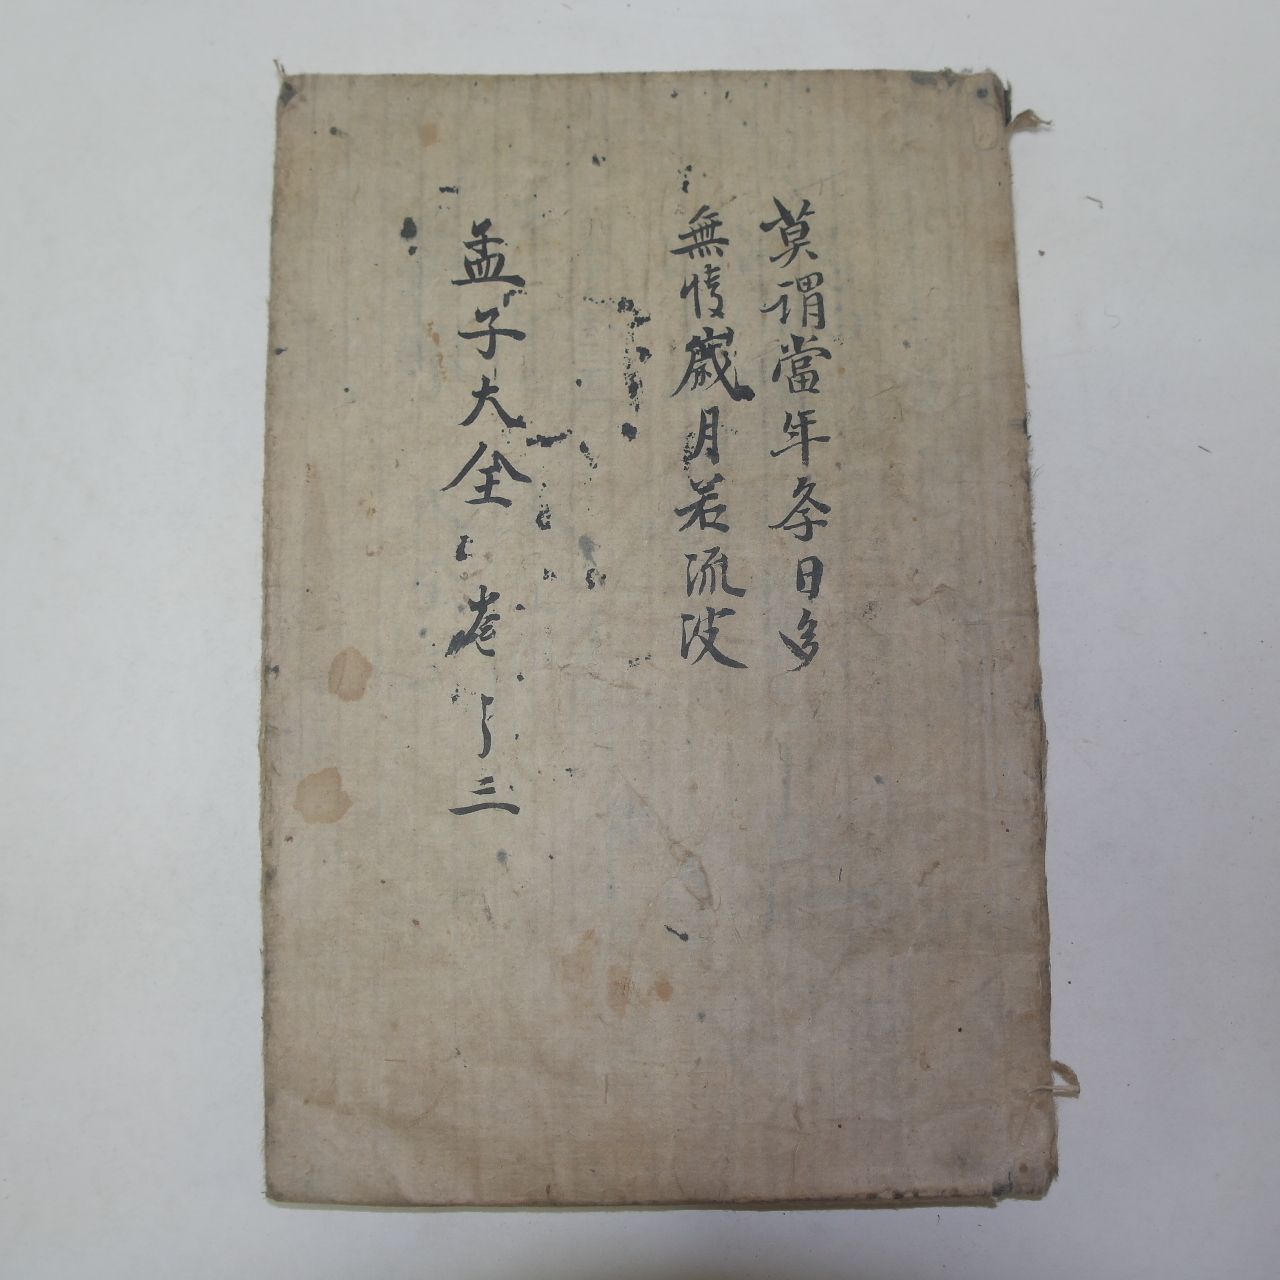 莫謂當年冬日多
無情歲月若流波
孟子大全之卷之三